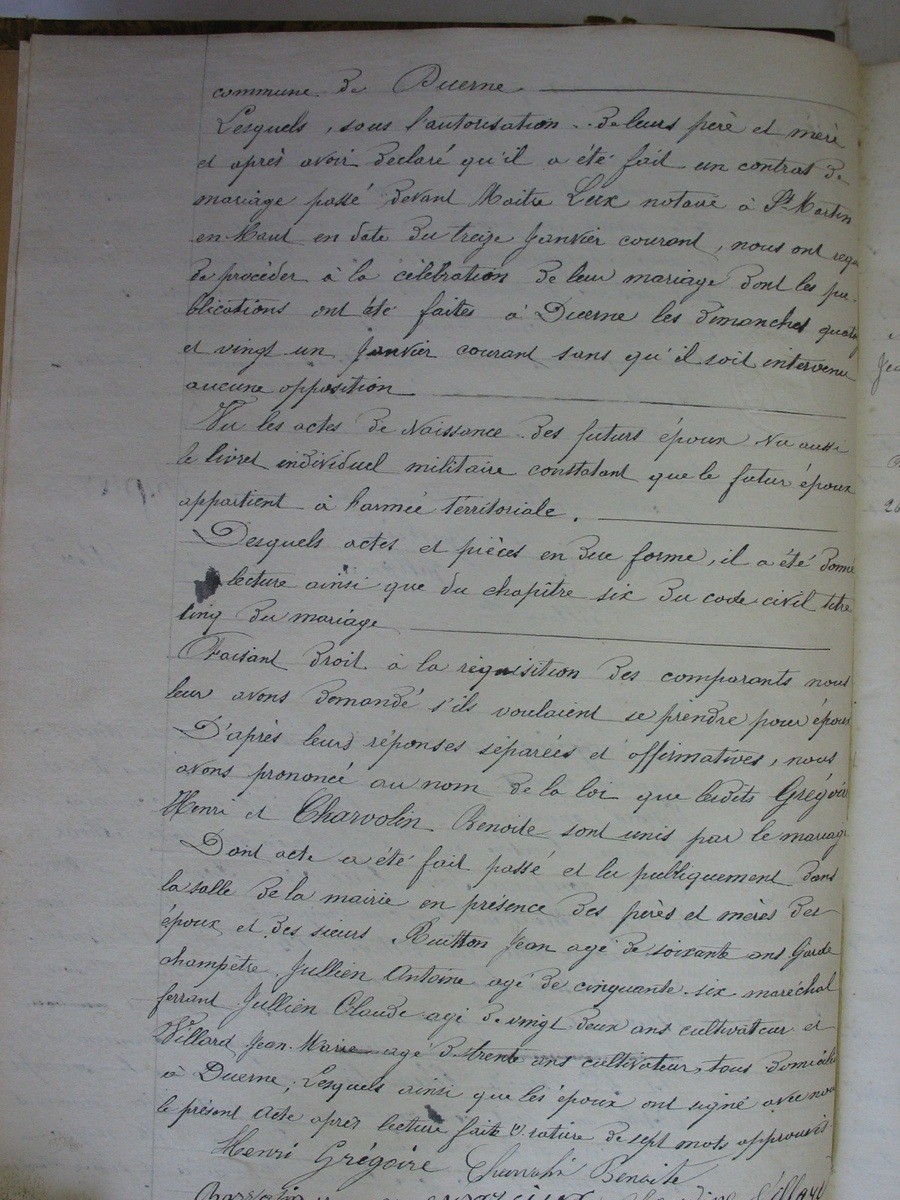 commune de Duerne
Lesquels, sous l'autorisation de leurs père et mère
et après avoir declaré qu'il a été fait un contrat de
mariage passé devant Maitre Lux notaire à St Martin
en-Haut en date du treize Janvier courant, nous ont requ
de procéder à la célébration de leur mariage dont les pu-
blications ont été faites à Duerne les dimanches quatorz
et vingt un Janvier courant sans qu'il soit intervenu
aucune opposition
Vu les actes de Naissance des futurs époux Vu aussi
le livret individuel militaire constatant que le futur époux
appartient à l'armée territoriale.
Desquels actes et pièces en due forme, il a été donné
lecture ainsi que du chapître six du code civil titre
cinq du mariage
Faisant droit à la réquisition des comparants nous
leur avons demandé s'ils voulaient se prendre pour époux
D'après leurs réponses séparées et affirmatives, nous
avons prononcé au nom de la loi que lesdits Grégoire
Henri et Charvolin Benoite sont unis par le mariage
Dont acte a été fait passé et lu publiquement dans
la salle de la mairie en présence des pères et mères des
époux et des sieurs Ruitton Jean agé de soixante ans Garde
champêtre Jullien Antoine agé de cinquante six maréchal
ferrant Jullien Claude agé de vingt deux ans cultivateur et
Villard Jean-Marie agé de trente ans cultivateur, tous domicilié
à Duerne, Lesquels ainsi que les époux ont signé avec nous
le présent acte après lecture faite rature de sept mots approuvés
Henri Grégoire Charvolin Benoite